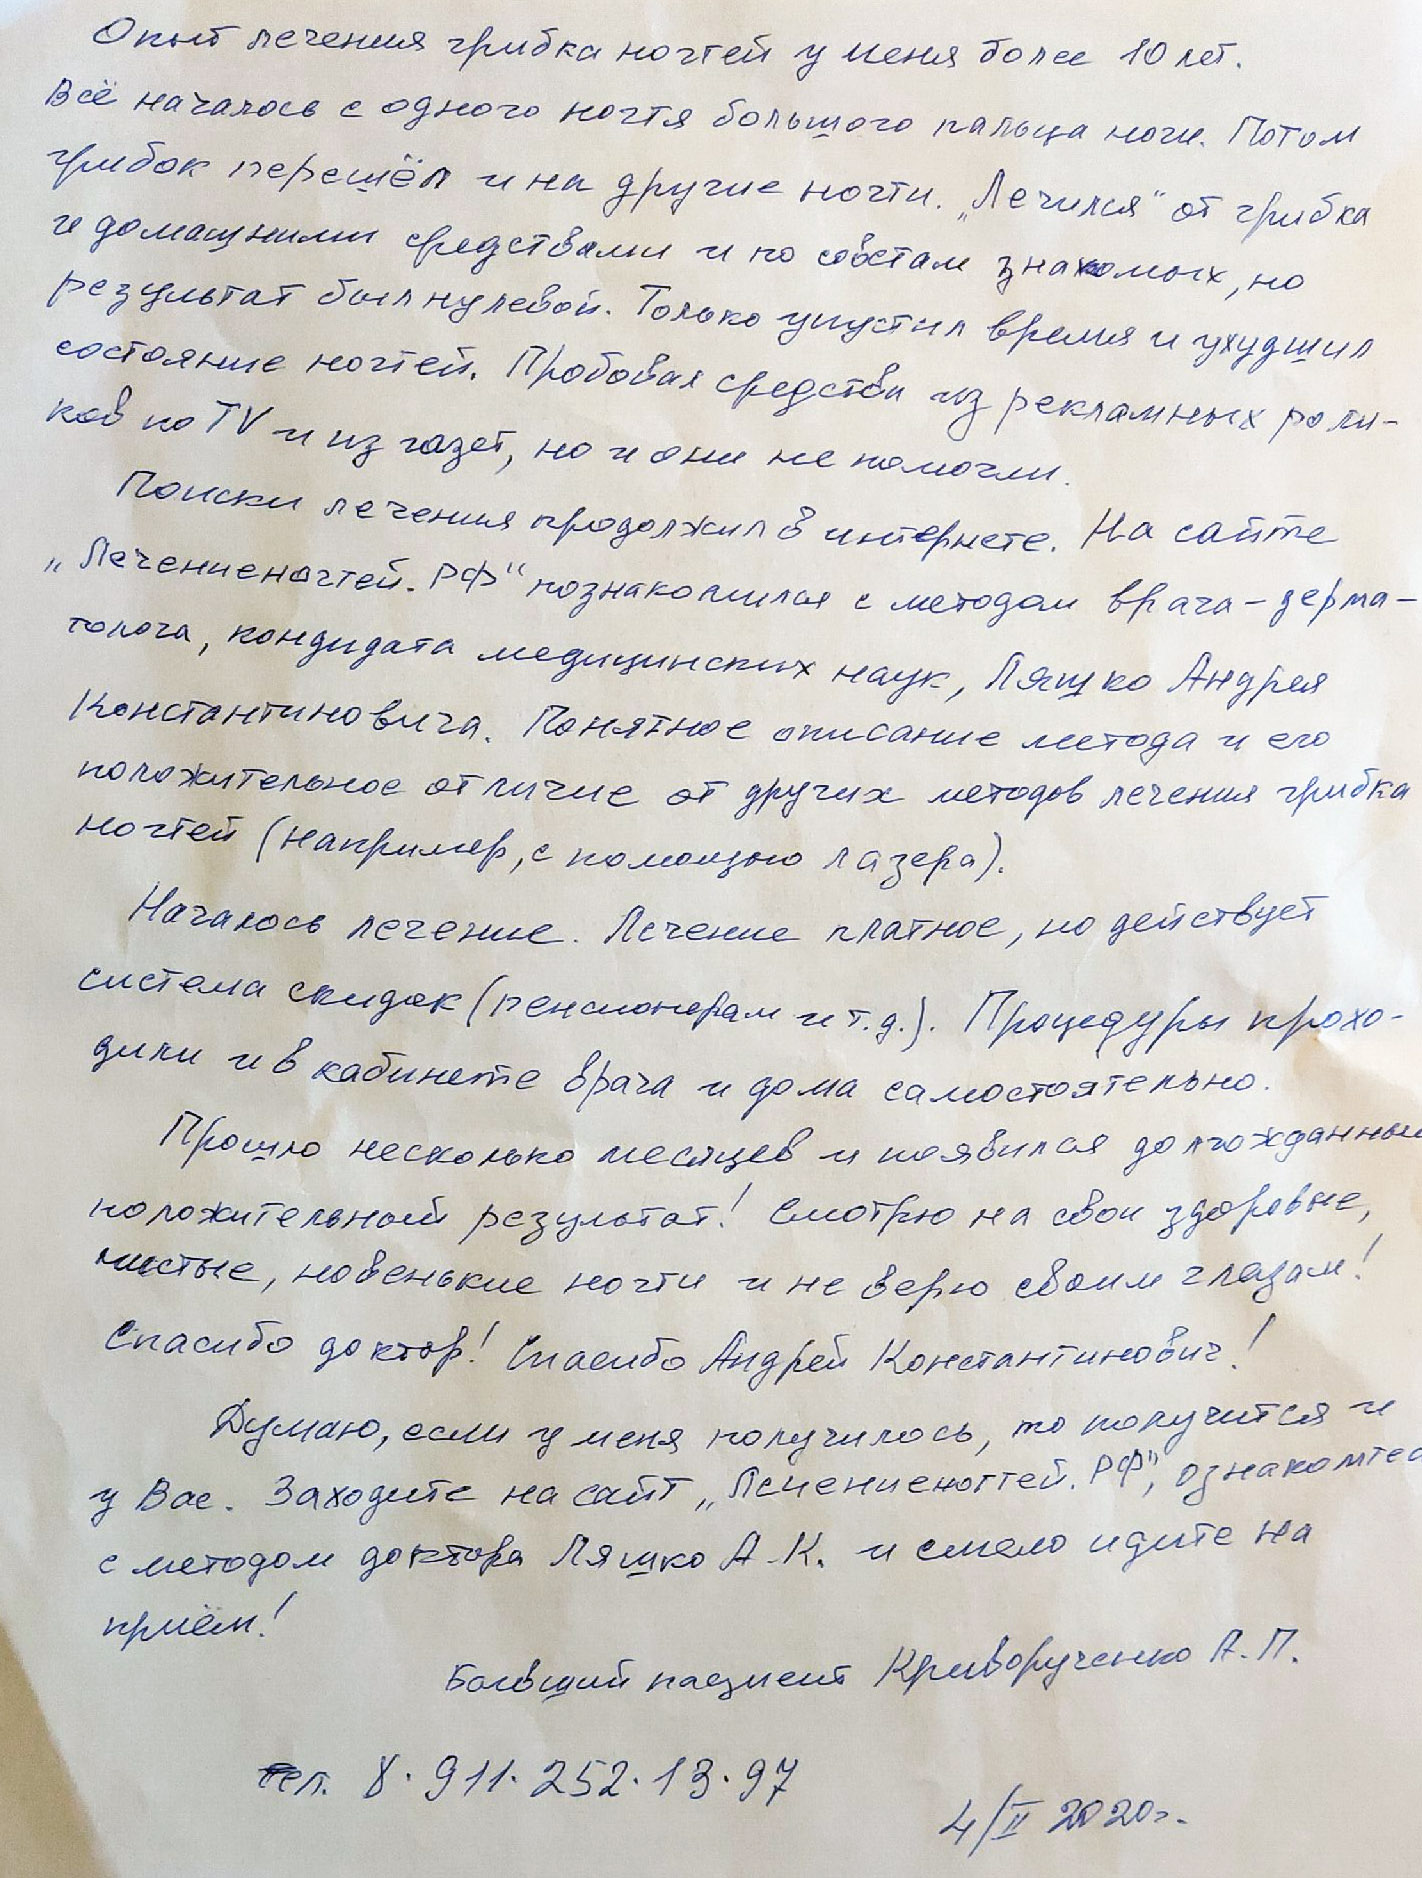 Опыт лечения грибка ногтей у меня более 10 лет.
Всё началось с одного ногтя большого пальца ноги. Потом
грибок перешёл и на другие ногти. „Лечился" от грибка
и домашними средствами и по советам знакомых, но
результат был нулевой. Только упустил время и ухудшил
состояние ногтей. Пробовал средства из рекламных роли-
ков по TV и из газет, но и они не помогли.
Поиски лечения продолжил в интернете. На сайте
„Лечениеногтей.РФ" познакомился с методом врача-дерма-
толога, кандидата медицинских наук, Ляшко Андрея
Константиновича. Понятное описание метода и его
положительное отличие от других методов лечения грибка
ногтей (например, с помощью лазера).
Началось лечение. Лечение платное, но действует
система скидок (пенсионерам и т.д.). Процедуры прохо-
дили и в кабинете врача и дома самостоятельно.
Прошло несколько месяцев и появился долгожданный
положительный результат! Смотрю на свои здоровые,
чистые, новенькие ногти и не верю своим глазам!
Спасибо доктор! Спасибо Андрей Константинович!
Думаю, если у меня получилось, то получится и
у Вас. Заходите на сайт „Лечениеногтей.РФ", ознакомтесь
с методом доктора Ляшко А.К. и смело идите на
приём!
Бывший пациент Криворученко А.П.
тел. 8.911.252.13.97
4/II 2020г.